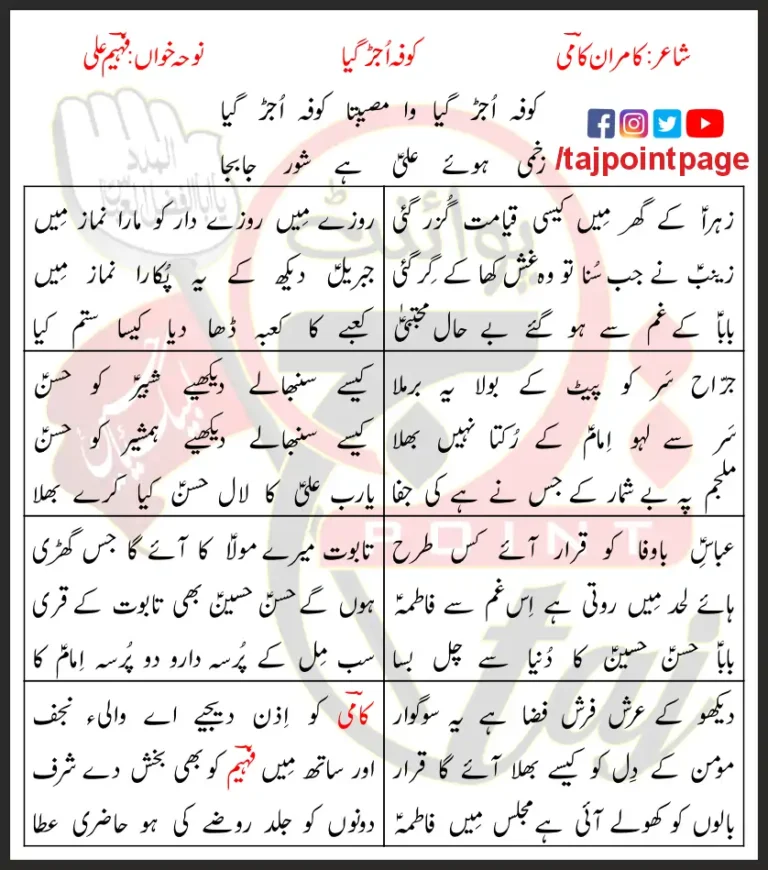 شاعر: کامران کامیؔ
کوفہ اُجڑ گیا
نوحہ خواں: فہیمؔ علی
کوفہ اُجڑ گیا وا مصیبتا کوفہ اُجڑ گیا
زخمی ہوئے علیؑ ہے شور جابجا
/tajpointpage
زہراؑ کے گھر مِیں کیسی قیامت گُزر گئی
زینبؑ نے جب سُنا تو وہ غش کھا کے گِر گئی
باباؑ کے غم سے ہو گئے بے حال مجتبیٰؑ
روزے مِیں روزے دار کو مارا نماز مِیں
جبریلؑ دیکھ کے یہ پُکارا نماز مِیں
کعبے کا کعبہ ڈھا دیا کیسا ستم کیا
جرّاح سَر کو پیٹ کے بولا یہ برملا
سَر سے لہو اِمامؑ کے رُکتا نہیں بھلا
ملجم پہ بے شمار کے جس نے ہے کی جفا
کیسے سنبھالے دیکھیے شبیرؑ کو حسنؑ
کیسے سنبھالے دیکھیے ہمشیر کو حسنؑ
یارب علیؑ کا لال حسنؑ کیا کرے بھلا
عباسِؑ باوفا کو قرار آئے کس طرح
ہائے لحد مِیں روتی ہے اِس غم سے فاطمہؑ
باباؑ حسنؑ حسینؑ کا دُنیا سے چل بسا
تابوت میرے مولاؑ کا آئے گا جس گھڑی
ہوں گے حسنؑ حسینؑ بھی تابوت کے قری
سب مِل کے پُرسہ دارو دو پُرسہ اِمامؑ کا
دیکھو کے عرش فرش فضا ہے یہ سوگوار
مومن کے دِل کو کیسے بھلا آئے گا قرار
بالوں کو کھولے آئی ہے مجلس مِیں فاطمہؑ
کامیؔ کو اِذن دیجیے اے والیء نجف
اور ساتھ مِیں فہیمؔ کو بھی بخش دے شرف
دونوں کو جلد روضے کی ہو حاضری عطا
پوائنٹ
POINT
taj